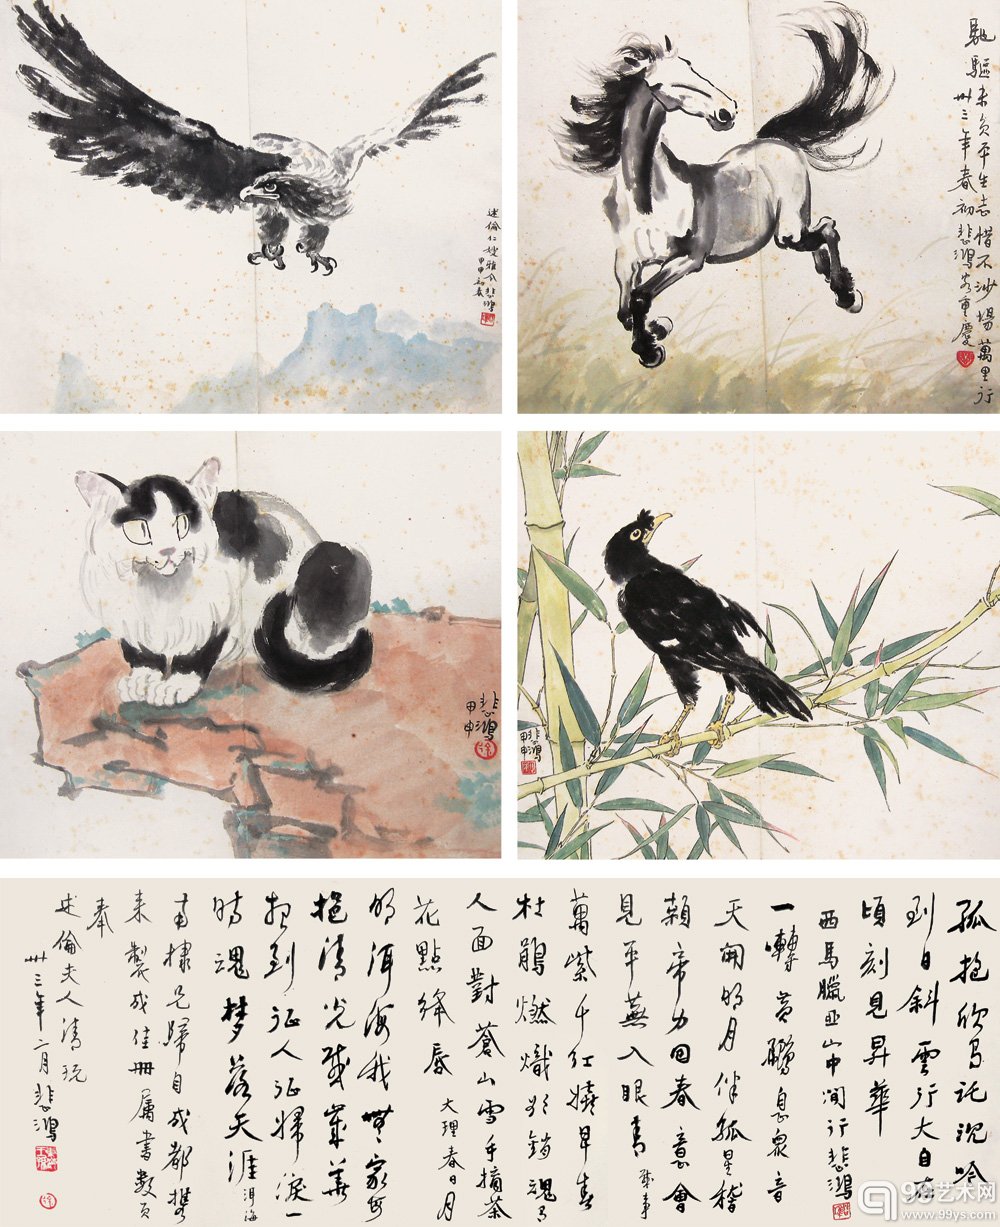 述倫仁嫂雅 悲鴻
甲申初春
馳驅未負平生志惜不沙場萬里行
卅三年春初悲鴻客重慶
悲鴻
甲申
悲鴻
甲申
孤抱欣烏託沈吟
到日斜雲行大自在
頃刻見昇華
西馬臘亞山中閒行悲鴻
一囀息泉音
天開明月伴孤星稽
顙帝力回春意會
見平蕪入眼青
萬紫千紅嬈早春
杜鵑燃熾欲銷魂
人面對蒼山雪手摘茶
花點絳唇 大理春日 月
明洱海我無家
抱清光感歲華
想到征人征婦淚一
時魂夢落天涯 洱海
甫棣兄歸自成都攜
來製成佳冊屬書數頁
奉
述倫夫人清玩
卅三年二月悲鴻
99艺术网
www.99ys.com